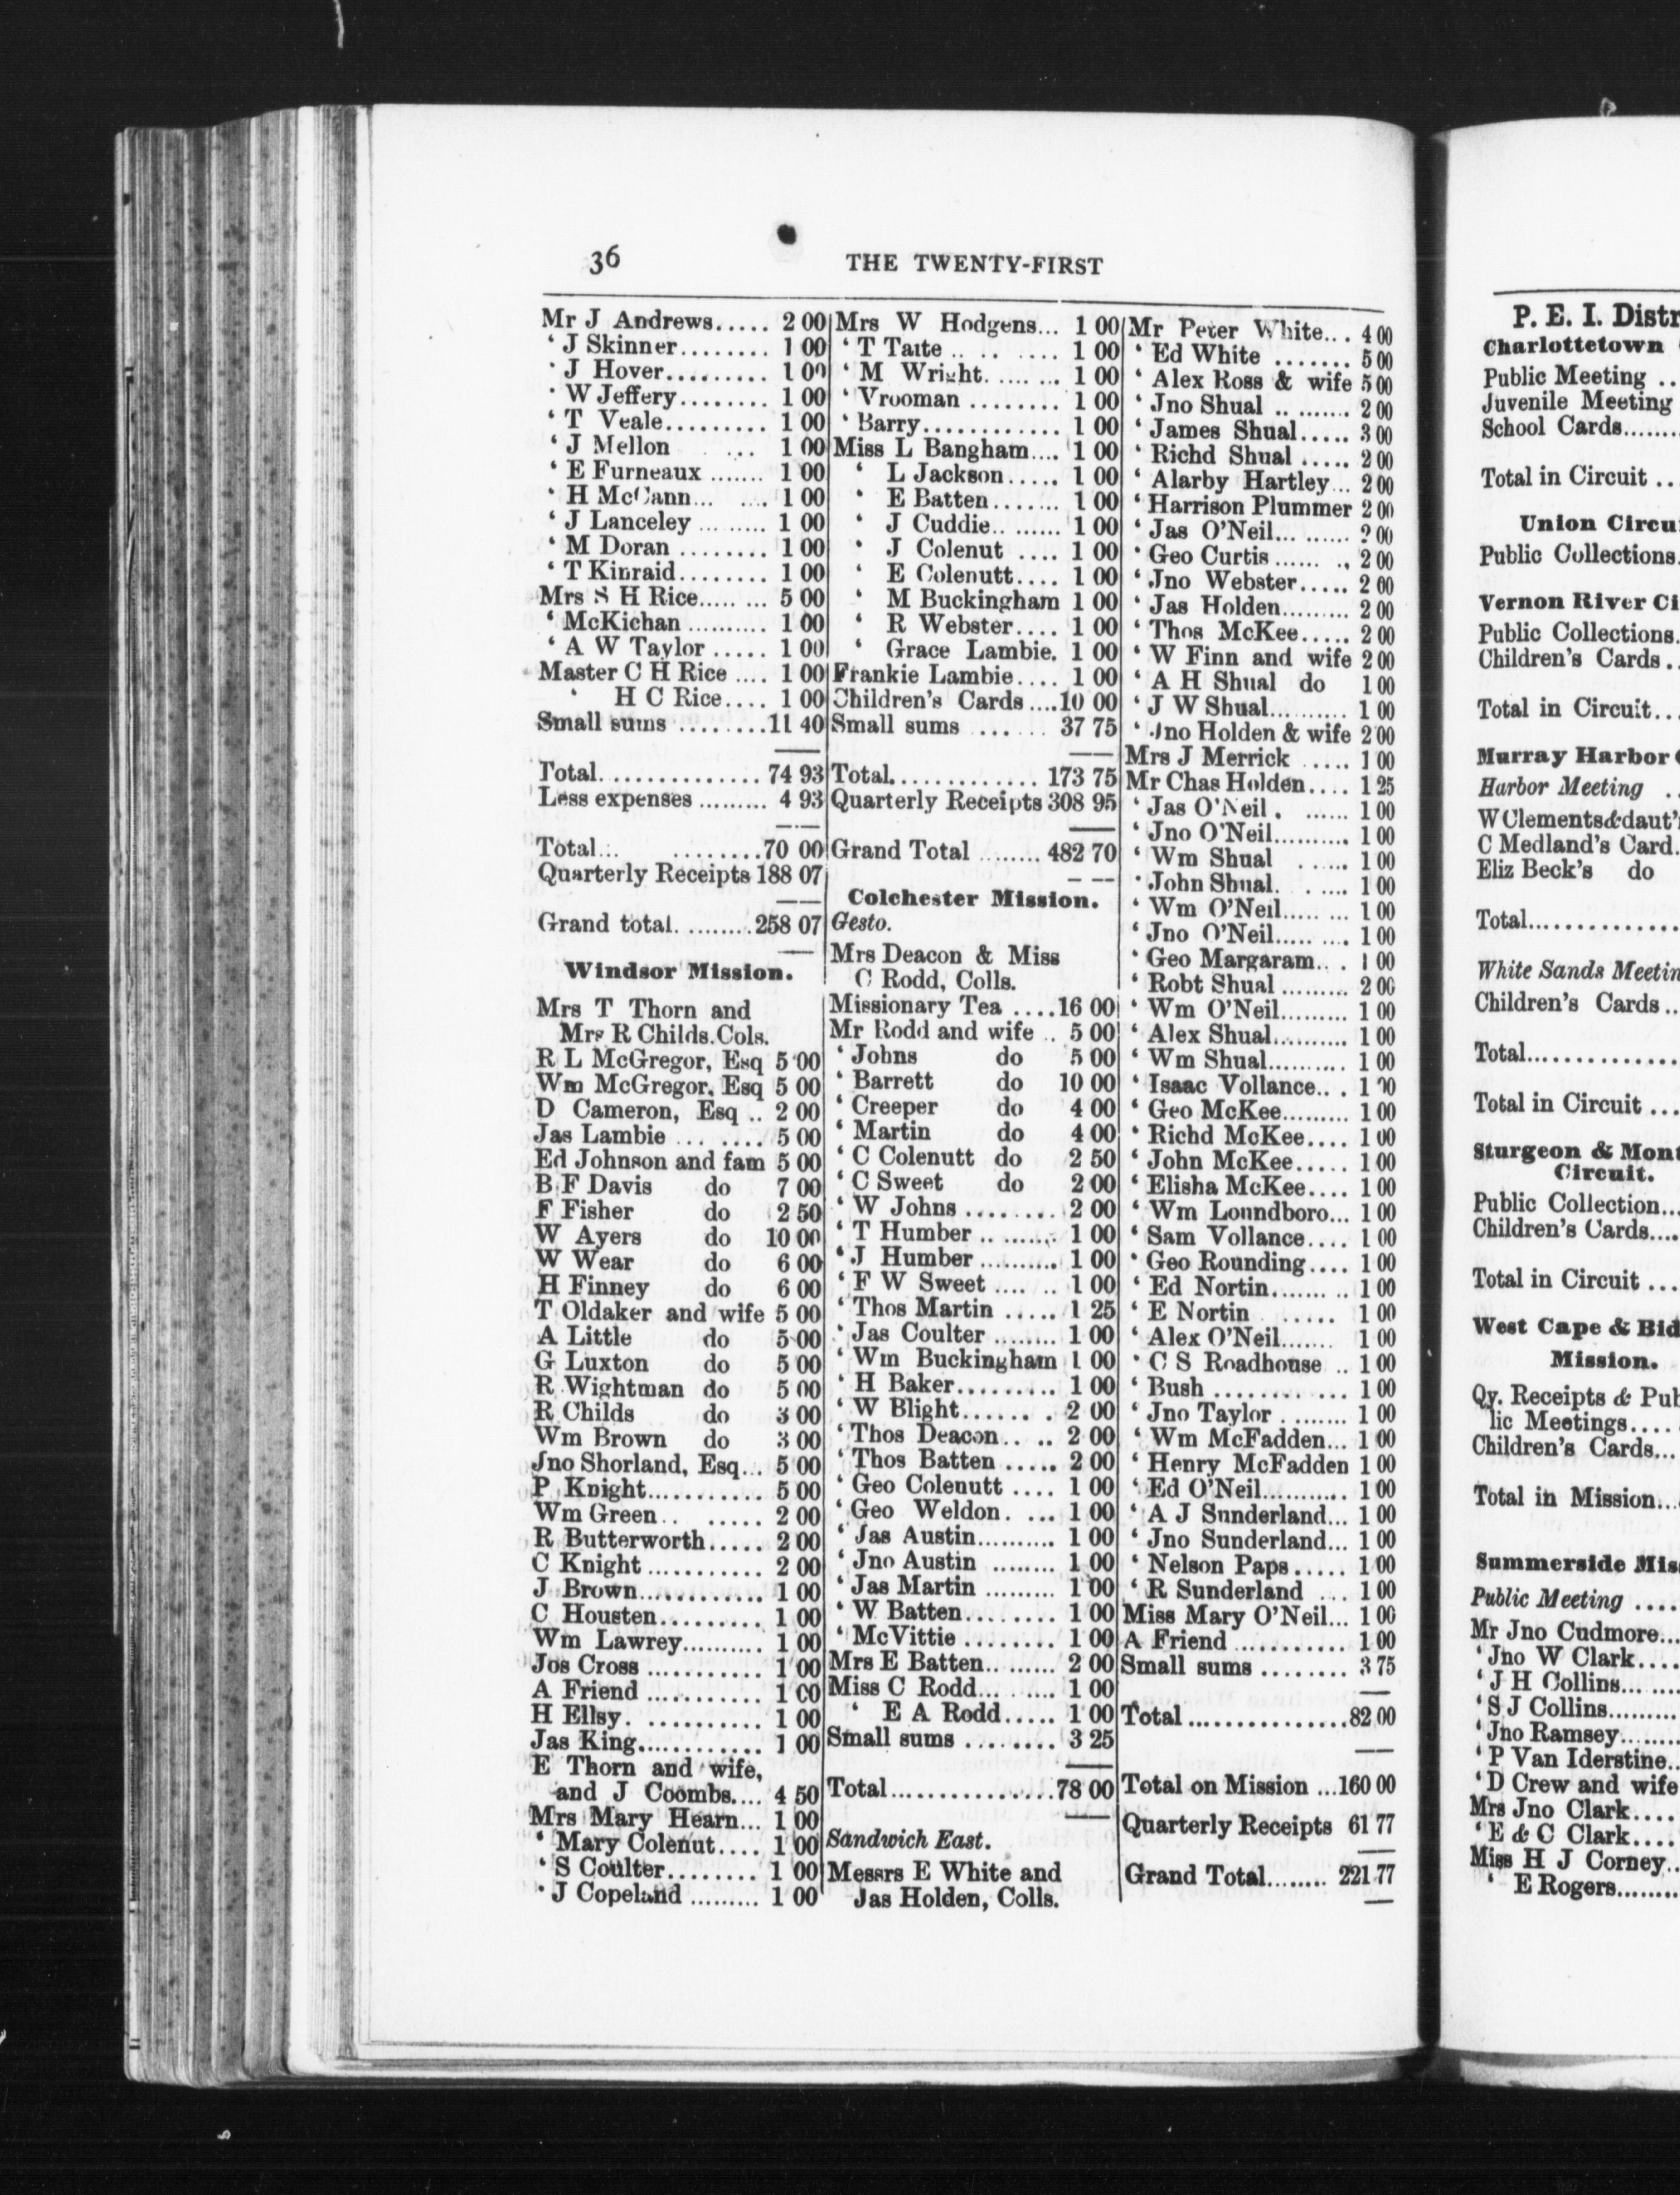 36
THE TWENTY-FIRST
Mr J Andrews..... 2 00
‘ J Skinner........ 1 00
‘ J Hover......... 1 00
‘ W Jeffery........ 1 00
‘ T Veale......... 1 00
‘ J Mellon ... 1 00
‘ E Furneaux ....... 1 00
‘ H McCann... .... 1 00
‘ J Lanceley ......... 1 00
‘ M Doran ........ 1 00
‘ T Kinraid........ 1 00
Mrs S H Rice..... ... 5 00
‘ McKichan .......... 1 00
‘ A W Taylor ..... 1 00
Master C H Rice .... 1 00
‘ H C Rice.... 1 00
Small sums ........11 40
Total.............. 74 93
Less expenses ......... 4 93
Total... .........70 00
Quarterly Receipts 188 07
Grand total. ........258 07
Windsor Mission.
Mrs T Thorn and
Mrs R Childs.Cols.
R L McGregor, Esq 5 00
Wm McGregor, Esq 5 00
D Cameron, Esq .. 2 00
Jas Lambie ... ..... 5 00
Ed Johnson and fam 5 00
B F Davis do 7 00
F Fisher do 2 50
W Ayers do 10 00
W Wear do 6 00
H Finney do 6 00
T Oldaker and wife 5 00
A Little do 5 00
G Luxton do 5 00
R Wightman do 5 00
R Childs do 3 00
Wm Brown do 3 00
Jno Shorland, Esq... 5 00
P Knight........... 5 00
Wm Green.. ..... 2 00
R Butterworth..... 2 00
C Knight ........... 2 00
J Brown............ 1 00
C Housten.......... 1 00
Wm Lawrey.......... 1 00
Jos Cross ........... 1 00
A Friend ........... 1 00
H Ellsy. ........... 1 00
Jas King............ 1 00
E Thorn and wife,
and J Coombs.... 4 50
Mrs Mary Hearn... 1 00
‘ Mary Colenut.... 1 00
‘ S Coulter......... 1 00
‘ J Copeland ......... 1 00
Mrs W Hodgens... 1 00
‘ T Taite .. .. ..... 1 00
‘ M Wright. ...... .. 1 00
‘ Vrooman ......... 1 00
‘ Barry............ 1 00
Miss L Bangham.... 1 00
‘ L Jackson..... 1 00
‘ E Batten....... 1 00
‘ J Cuddie.. ...... 1 00
‘ J Colenut .... 1 00
‘ E Colenutt.... 1 00
‘ M Buckingham 1 00
‘ R Webster.... 1 00
‘ Grace Lambie. 1 00
Frankie Lambie.... 1 00
Children's Cards ....10 00
Small sums ... ... 37 75
Total.............. 173 75
Quarterly Receipts 308 95
Grand Total ........ 482 70
Colchester Mission.
Gesto.
Mrs Deacon & Miss
C Rodd, Colls.
Missionary Tea ....16 00
Mr Rodd and wife .. 5 00
‘ Johns do 5 00
‘ Barrett do 10 00
‘ Creeper do 4 00
‘ Martin do 4 00
‘ C Colenutt do 2 50
‘ C Sweet do 2 00
‘ W Johns ........ 2 00
‘ T Humber .. ...... 1 00
‘ J Humber .......... 1 00
‘ F W Sweet .... .. 1 00
‘ Thos Martin ..... 1 25
‘ Jas Coulter ........ 1 00
‘ Wm Buckingham 1 00
‘ H Baker.......... 1 00
‘ W Blight...... . 2 00
‘ Thos Deacon.. .. 2 00
Thos Batten ..... 2 00
‘ Geo Colenutt .... 1 00
‘ Geo Weldon. ... 1 00
‘ Jas Austin.......... 1 00
‘ Jno Austin ........ 1 00
‘ Jas Martin ......... 1 00
‘ W Batten......... 1 00
‘ McVittie ........ 1 00
Mrs E Batten.. ...... 2 00
Miss C Rodd... ..... 1 00
‘ E A Rodd..... 1 00
Small sums ........ 3 25
Total...............78 00
Sandwich East.
Messrs E White and
Jas Holden, Colls.
Mr Peter White... 4 00
‘ Ed White ....... 5 00
‘ Alex Ross & wife 5 00
‘ Jno Shual .. ....... 2 00
‘ James Shual..... 3 00
‘ Richd Shual ..... 2 00
‘ Alarby Hartley... 2 00
‘ Harrison Plummer 2 00
‘ Jas O'Neil... ...... 2 00
‘ Geo Curtis ...... ., 2 00
‘ Jno Webster..... 2 00
‘ Jas Holden......... 2 00
‘ Thos McKee..... 2 00
‘ W Finn and wife 2 00
‘ A H Shual do 1 00
‘ J W Shual.......... 1 00
‘ Jno Holden & wife 2 00
Mrs J Merrick ..... 1 00
Mr Chas Holden.... 1 25
‘ Jas O'Neil . ...... 1 00
‘ Jno O'Neil.......... 1 00
‘ Wm Shual ..... 1 00
‘ John Shual. . .... 1 00
‘ Wm O'Neil..... ... 1 00
‘ Jno O'Neil..... .... 1 00
‘ Geo Margaram.. . 1 00
‘ Robt Shual ......... 2 00
‘ Wm O'Neil......... 1 00
‘ Alex Shual.......... 1 00
‘ Wm Shual.......... 1 00
‘ Isaac Vollance.. . 1 00
‘ Geo McKee......... 1 00
‘ Richd McKee.... 1 00
‘ John McKee..... 1 00
‘ Elisha McKee.... 1 00
‘ Wm Loundboro... 1 00
‘ Sam Vollance.... 1 00
‘ Geo Rounding.... 1 00
‘ Ed Nortin....... .. 1 00
‘ E Nortin ...... 1 00
‘ Alex O'Neil...... 1 00
‘ C S Roadhouse .. 1 00
‘ Bush ............ 1 00
‘ Jno Taylor . ....... 1 00
‘ Wm McFadden... 1 00
‘ Henry McFadden 1 00
‘ Ed O'Neil........... 1 00
‘ A J Sunderland... 1 00
‘ Jno Sunderland... 1 00
‘ Nelson Paps..... 1 00
‘ R Sunderland ... 1 00
Miss Mary O'Neil... 1 00
A Friend ........... 1 00
Small sums ........ 3 75
Total ...............82 00
Total on Mission ...160 00
Quarterly Receipts 61 77
Grand Total........ 221 77
P. E. I. Distr
Charlottetown
Public Meeting ..
Juvenile Meeting
School Cards.......
Total in Circuit ..
Union Circu
Public Collections.
Vernon River Ci
Public Collections.
Children's Cards..
Total in Circuit...
Murray Harbor
Harbor Meeting ..
W Clements&daut'
C Medland's Card.
Eliz Beck's do
Total..............
White Sands Meetin
Children's Cards ..
Total..............
Total in Circuit ...
Sturgeon & Mont
Circuit.
Public Collection...
Children's Cards....
Total in Circuit ...
West Cape & Bid
Mission.
Qy. Receipts & Pub
lic Meetings....
Children's Cards...
Total in Mission...
Summerside Mis
Public Meeting ....
Mr Jno Cudmore...
‘ Jno W Clark....
‘ J H Collins.......
‘ S J Collins........
‘ Jno Ramsey.......
‘ P Van Iderstine..
‘ D Crew and wife
Mrs Jno Clark....
‘ E & C Clark....
Miss H J Corney..
‘ E Rogers........